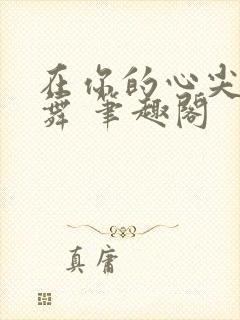 在你的心尖
舞 笔趣阁
真庸